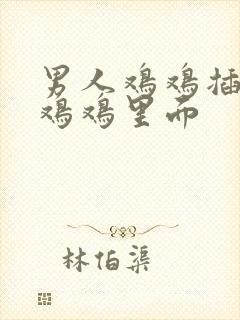 男人鸡鸡插
鸡鸡里面
林伯渠